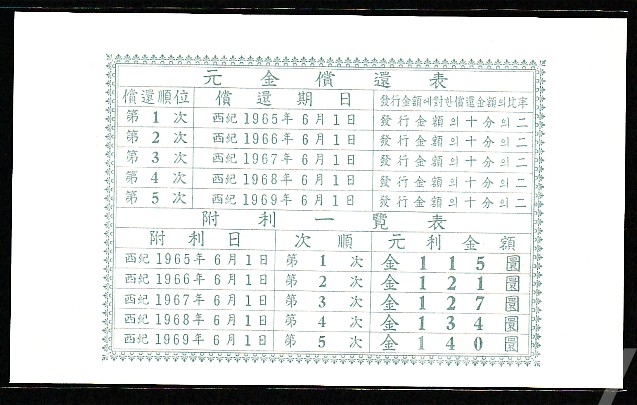 元金償還表
償還順位 償還期日 發行金額에對한償還金額의比率
第1次 西紀1965年6月1日 發行金額의十分의二
第2次 西紀1966年6月1日 發行金額의十分의二
第3次 西紀1967年6月1日 發行金額의十分의二
第4次 西紀1968年6月1日 發行金額의十分의二
第5次 西紀1969年6月1日 發行金額의十分의二
附利一覽表
附利日 次順 元利金額
西紀1965年6月1日 第1次 金115圜
西紀1966年6月1日 第2次 金121圜
西紀1967年6月1日 第3次 金127圜
西紀1968年6月1日 第4次 金134圜
西紀1969年6月1日 第5次 金140圜